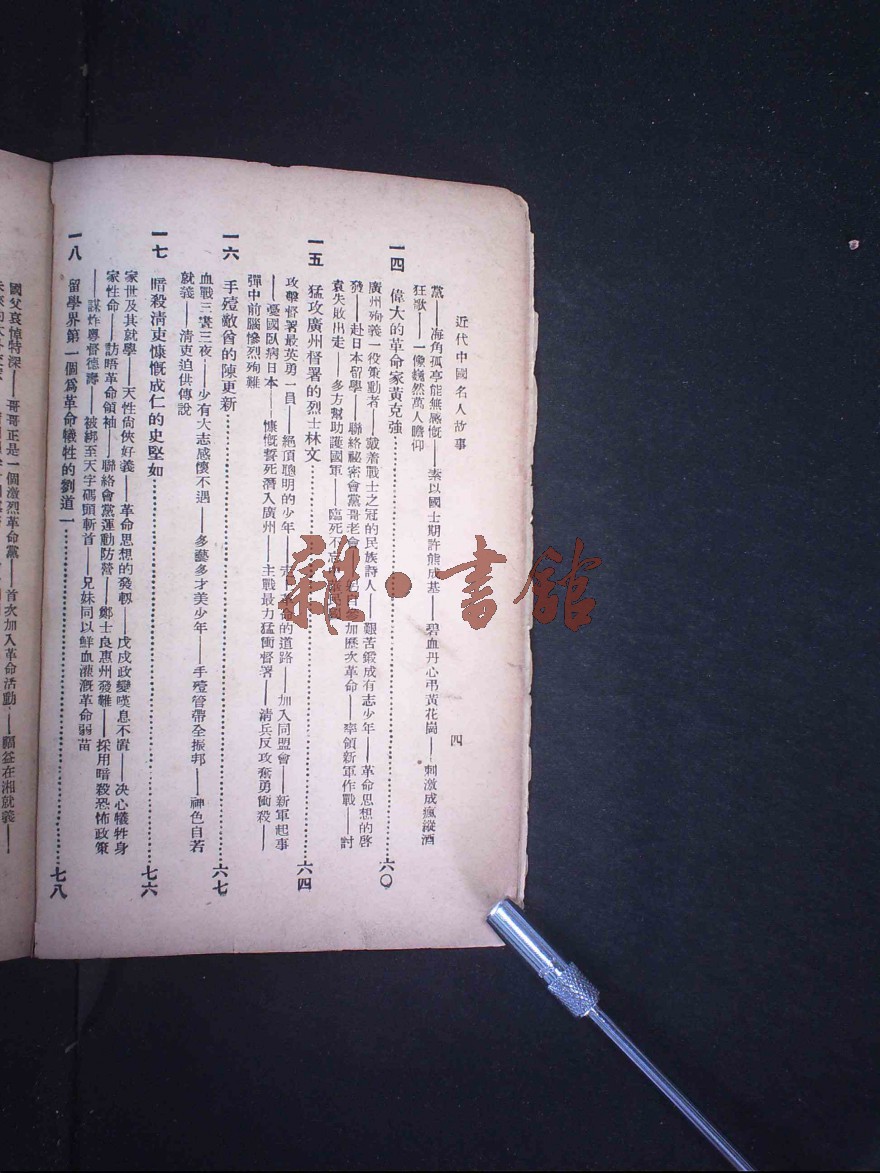 近代中國名人故事
四
黨——海角孤亭能無感慨——素以國士期許熊成基——碧血丹心弔黃花崗——刺激成瘋縱酒
狂歌——一像巍然萬人瞻仰
一四 偉大的革命家黃克強…………六〇
廣州殉義一役策動者——戴着戰士之冠的民族詩人——艱苦鍛成有志少年——革命思想的啓
發——赴日本留學——聯絡祕密會黨哥老會加歷次革命——率領新軍作戰——討
袁失敗出走——多方幫助護國軍——臨死不忘
一五 猛攻廣州督署的烈士林文…………六四
攻擊督署最英勇一員——絕頂聰明的少年——革命的道路——加入同盟會——新軍起事
——憂國臥病日本——慷慨誓死潛入廣州——主戰最力猛衝督署——清兵反攻奮勇衝殺——
彈中前腦慘烈殉難
一六 手殪敵酋的陳更新…………六七
血戰三晝三夜——少有大志感懷不遇——多藝多才美少年——手殪管帶全振邦——神色自若
就義——清吏迫供傳說
一七 暗殺清吏慷慨成仁的史堅如…………七六
家世及其就學——天性尙俠好義——革命思想的發軔——戊戌政變嘆息不置——决心犧牲身
家性命——訪晤革命領袖——聯絡會黨運動防營——鄭士良惠州發難——採用暗殺恐怖政策
——謀炸粵督德壽——被綁至天字碼頭斬首——兄妹同以鮮血灌溉革命弱苗
一八 留學界第一個爲革命犧牲的劉道一…………七八
國父哀悼特深——哥哥正是一個激烈革命黨——首次加入革命活動——在湘就義——
雜·書館